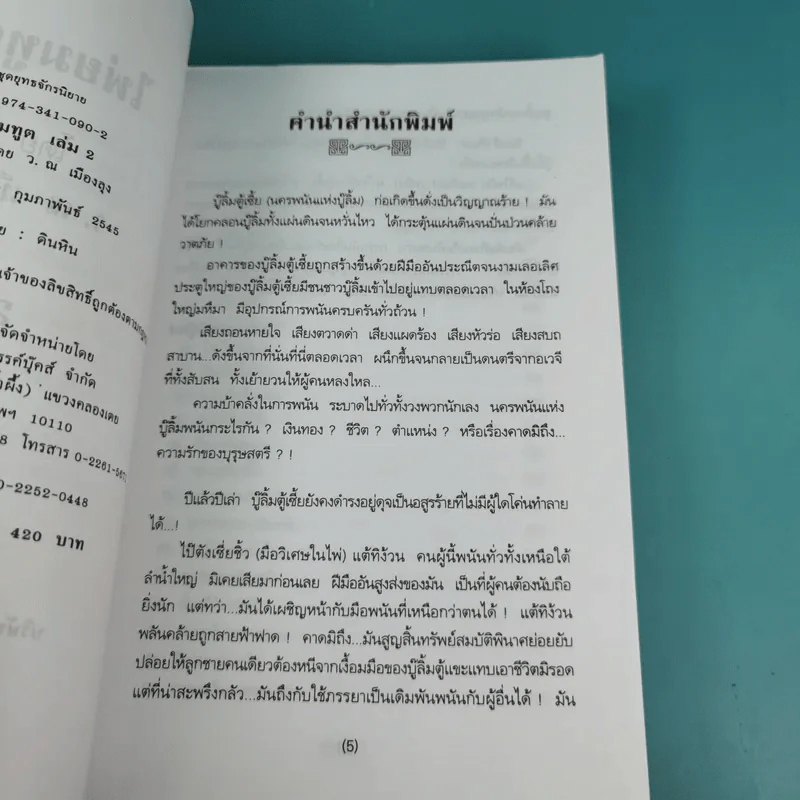 ไพ่ยมทู
ชุดยุทธจักรนิยาย
974-341-090-2
มทูต เล่ม 2
ดย ว. ณ เมืองลุง
กุมภาพันธ์ 2545
ย : ดินหิน
เจ้าของลิขสิทธิ์ถูกต้องตามกฎห
จัดจำหน่ายโดย
รรค์บุ๊คส์ จำกัด
ำผึ้ง) แขวงคลองเตย
ทพฯ 10110
8 โทรสาร 0-2261-567
0-2252-0448
420 บาท
คำนำสำนักพิมพ์
บู๊ลิ้มตู้เซี้ย (นครพนันแห่งบู๊ลิ้ม) ก่อเกิดขึ้นดั่งเป็นวิญญาณร้าย ! มัน
ได้โยกคลอนบู๊ลิ้มทั้งแผ่นดินจนหวั่นไหว ได้กระตุ้นแผ่นดินจนปั่นป่วนคล้าย
วาตภัย !
อาคารของบู๊ลิ้มตู้เซี้ยถูกสร้างขึ้นด้วยฝีมืออันประณีตจนงามเลอเลิศ
ประตูใหญ่ของบู๊ลิ้มตู้เซี้ยมีชนชาวบู๊ลิ้มเข้าไปอยู่แทบตลอดเวลา ในห้องโถง
ใหญ่มหึมา มีอุปกรณ์การพนันครบครันทั่วถ้วน !
เสียงถอนหายใจ เสียงตวาดด่า เสียงแผดร้อง เสียงหัวร่อ เสียงสบถ
สาบาน...ดังขึ้นจากที่นั่นที่นี่ตลอดเวลา ผนึกขึ้นจนกลายเป็นดนตรีจากอเวจี
ที่ทั้งสับสน ทั้งเย้ายวนให้ผู้คนหลงใหล...
ความบ้าคลั่งในการพนัน ระบาดไปทั่วทั้งวงพวกนักเลง นครพนันแห่ง
บู๊ลิ้มพนันกระไรกัน ? เงินทอง ? ชีวิต ? ตำแหน่ง ? หรือเรื่องคาดมิถึง...
ความรักของบุรุษสตรี ? !
ปีแล้วปีเล่า บู๊ลิ้มตู้เซี้ยยังคงดำรงอยู่ดุจเป็นอสูรร้ายที่ไม่มีผู้ใดโค่นทำลาย
ได้...!
ไป๊ตังเซี่ยชิ้ว (มือวิเศษในไพ่) แต้ทิง้วน คนผู้นี้พนันทั่วทั้งเหนือใต้
ลำน้ำใหญ่ มิเคยเสียมาก่อนเลย ฝีมืออันสูงส่งของมัน เป็นที่ผู้คนต้องนับถือ
ยิ่งนัก แต่ทว่า...มันได้เผชิญหน้ากับมือพนันที่เหนือกว่าตนได้ ! แต้ทิง้วน
พลันคล้ายถูกสายฟ้าฟาด ! คาดมิถึง...มันสูญสิ้นทรัพย์สมบัติพินาศย่อยยับ
ปล่อยให้ลูกชายคนเดียวต้องหนีจากเงื้อมมือของบู๊ลิ้มตู้แซะแทบเอาชีวิตมิรอด
แต่ที่น่าสะพรึงกลัว...มันถึงกับใช้ภรรยาเป็นเดิมพันพนันกับผู้อื่นได้ ! มัน
(5)